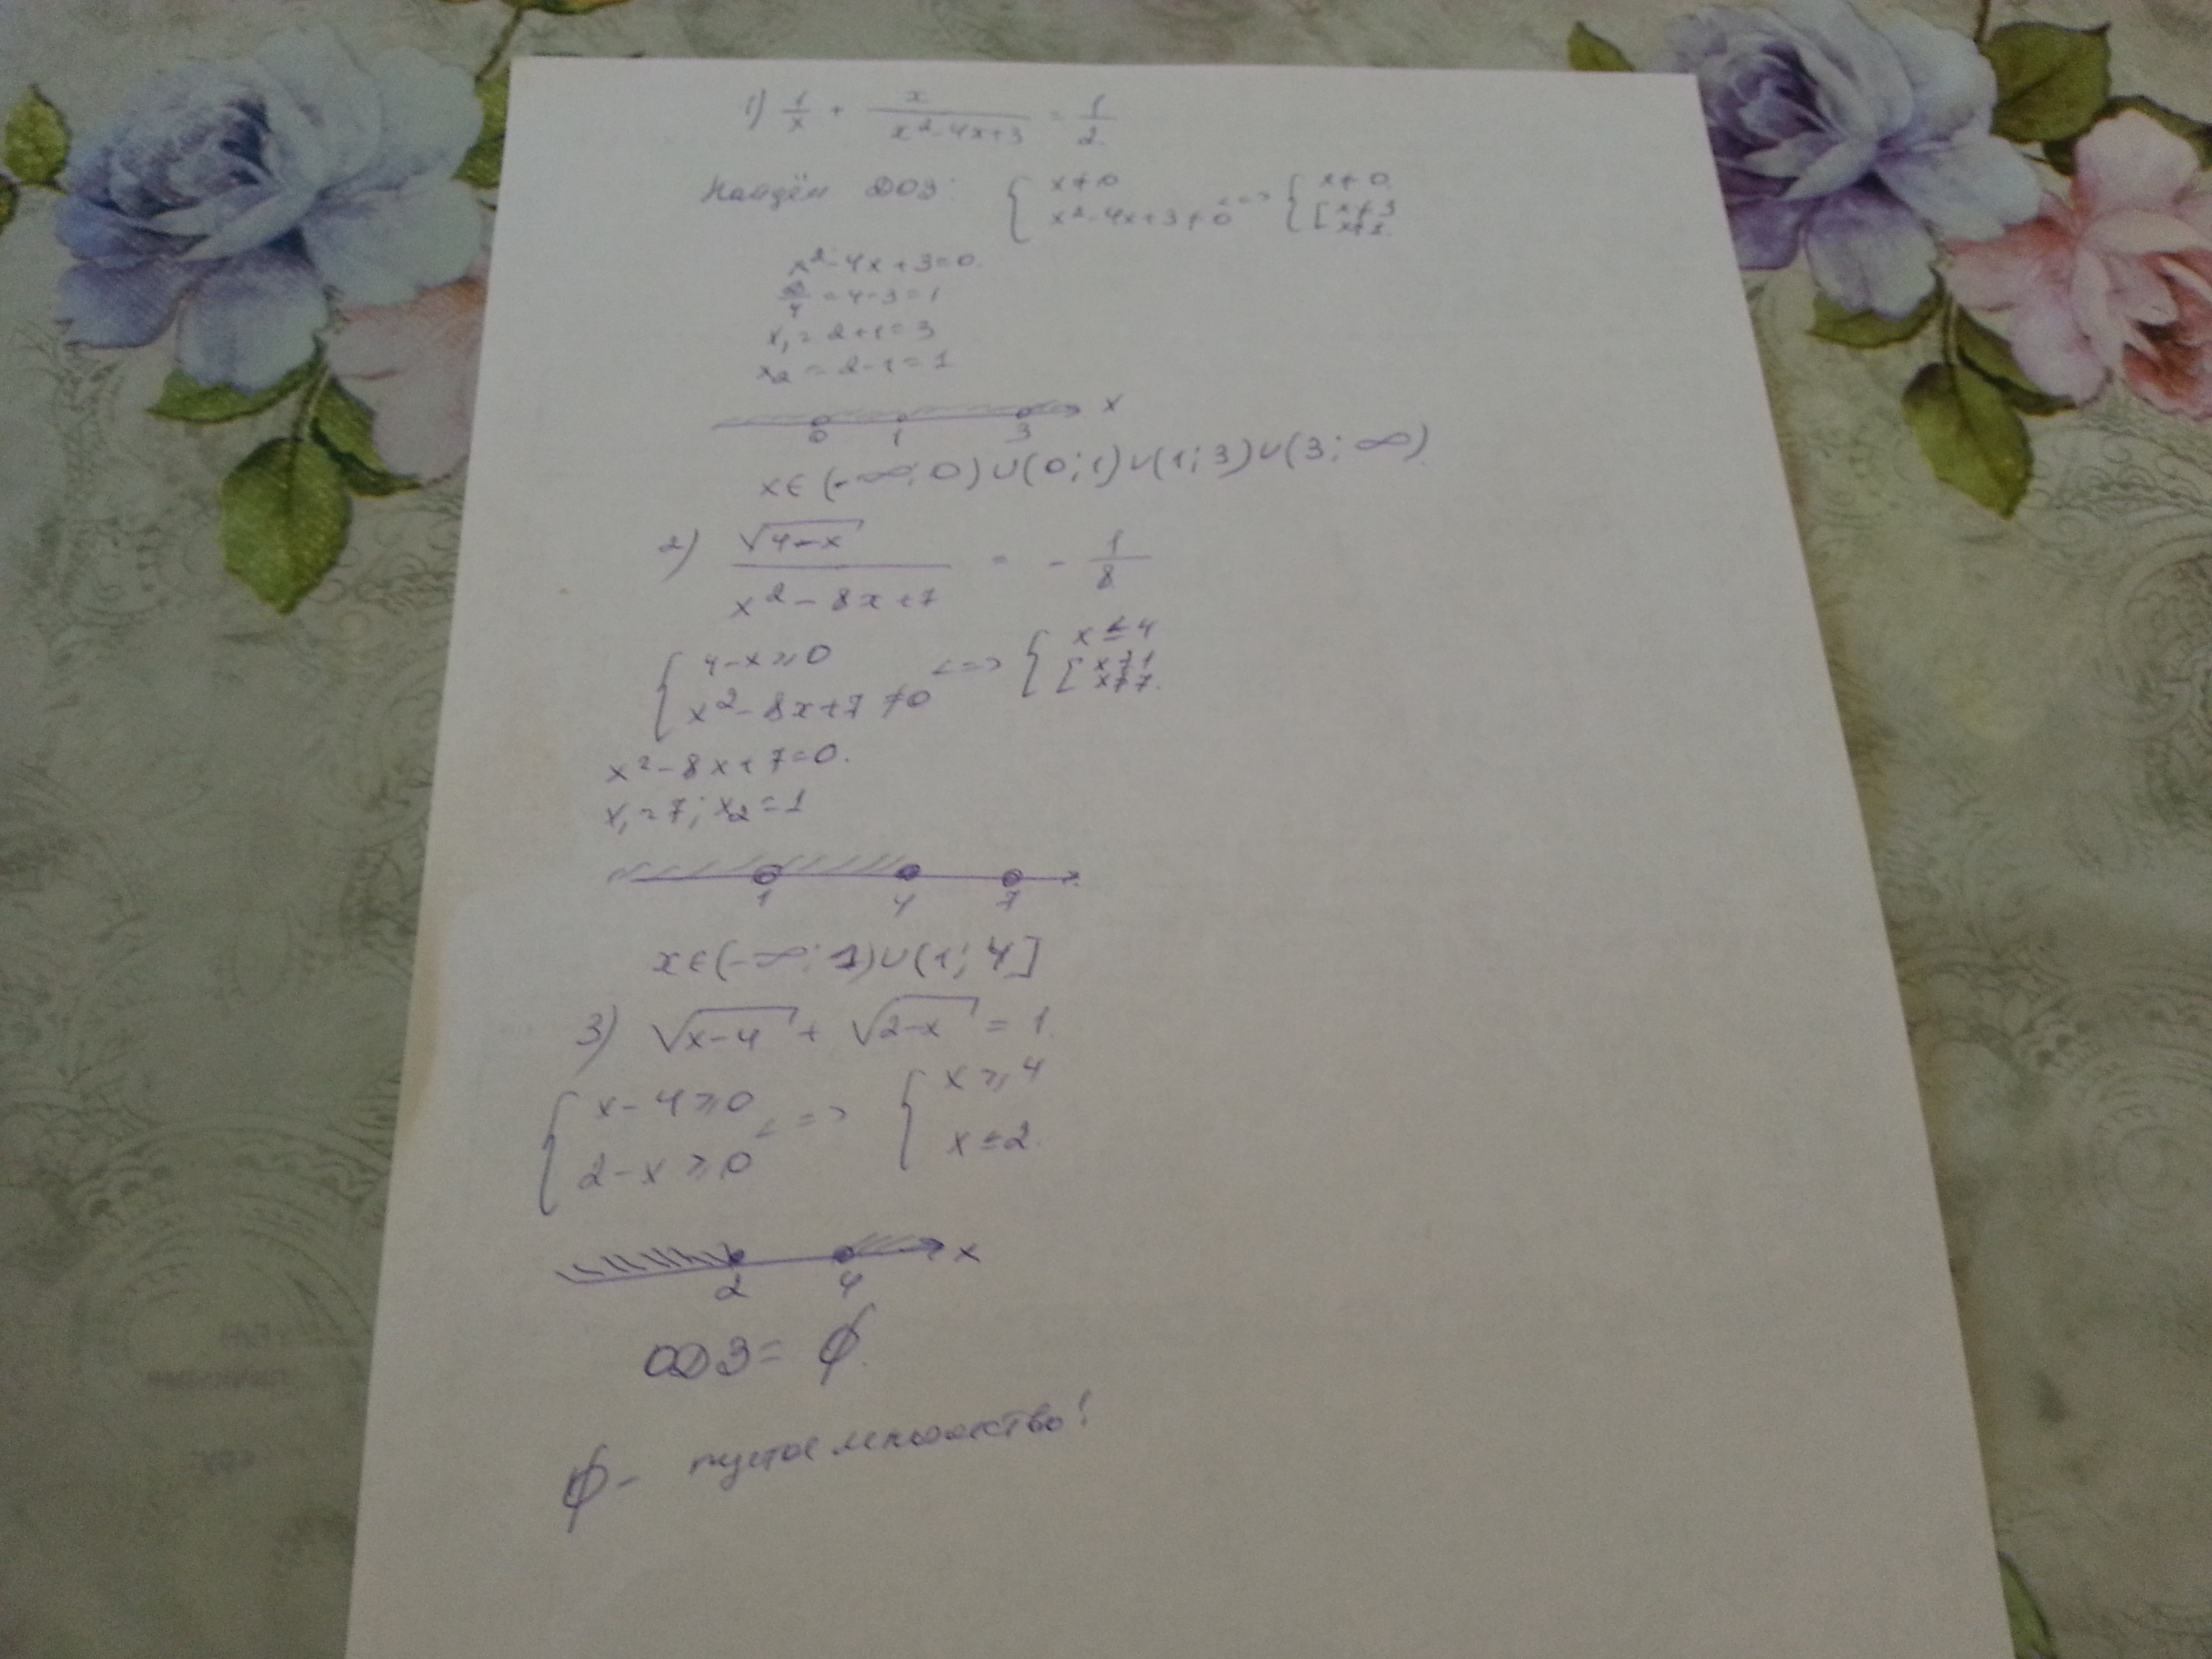 1) 1/x + x/(x²-4x+3) = 1/2.
Найдём ОДЗ: { x≠0 x²-4x+3≠0 <=> { x≠0 [ x≠3 x≠1.
x²-4x+3=0.
D/4 = 4-3=1
x₁ = 2+1=3
x₂ = 2-1=1
0 1 3 x
x∈(-∞; 0)∪(0; 1)∪(1; 3)∪(3; ∞)
2) √(4-x)/(x²-8x+7) = -1/8
{ 4-x⩾0 x²-8x+7≠0 <=> { x≤4 [ x≠1 x≠7.
x²-8x+7=0.
x₁=7; x₂=1
1 4 7
x∈(-∞; 1)∪(1; 4]
3) √(x-4) + √(2-x) = 1.
{ x-4⩾0 2-x⩾0 <=> { x⩾4 x≤2.
2 4 x
ОДЗ= ∅.
∅ - пустое множество!